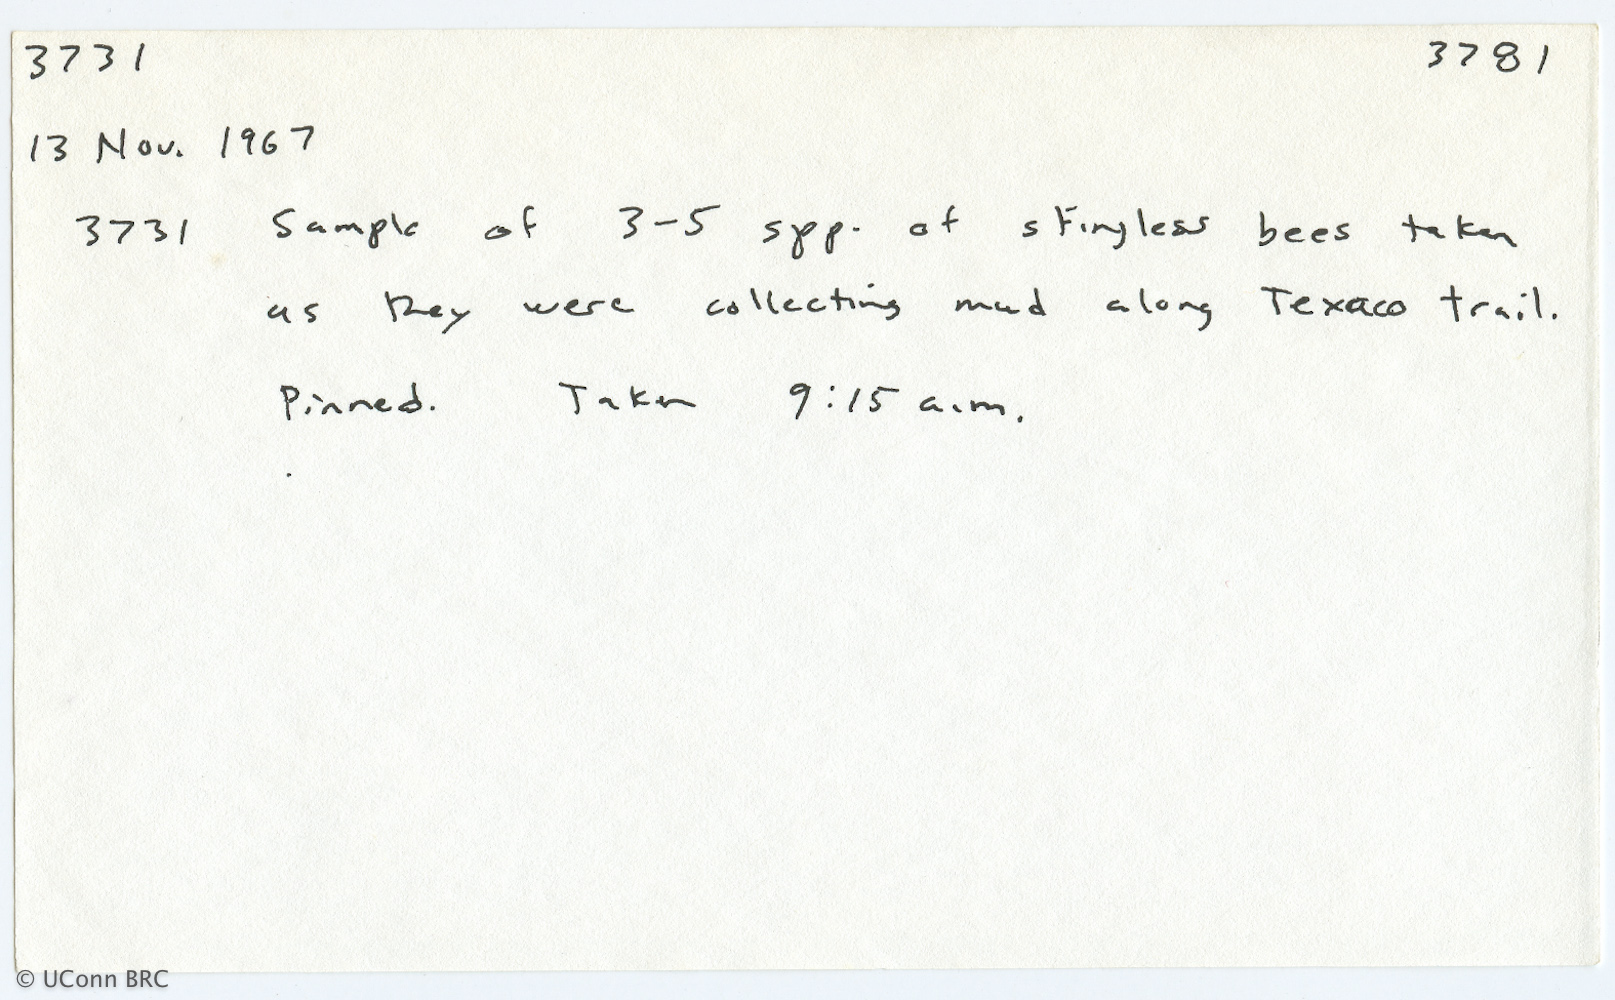 3731 3781
13 Nov. 1967
3731 Sample of 3-5 spp. of stingless bees taken
as they were collecting mud along Texaco trail.
Pinned. Taken 9:15 a.m.
© UConn BRC